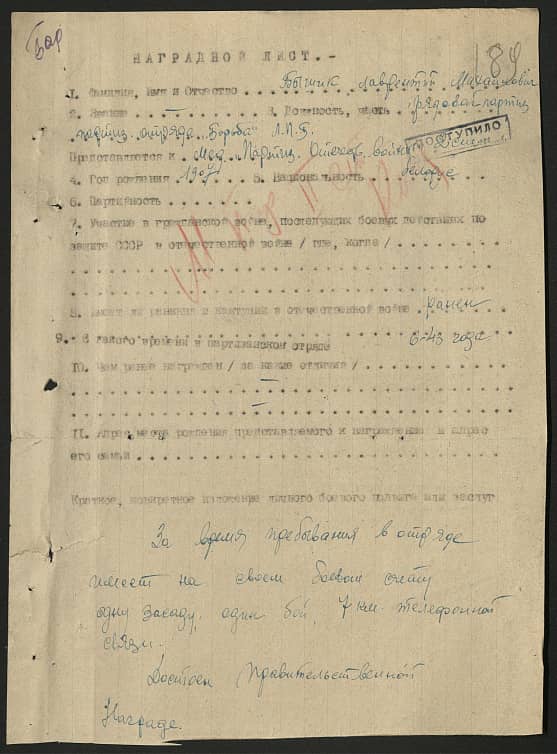 Бар
184
НАГРАДНОЙ ЛИСТ.-
1. Фамилия, Имя и Отчество Бычик Лаврентий Михайлович
2. Звание — 3. Должность, часть рядовой партиз
отряда "Борьба" Л.П.Б
ПОСТУПИЛО
Представляется к Мед. "Партиз. Отечеств. войны"
4. Год рождения 1907 5. Национальность белорус
6. Партийность
7. Участие в гражданской войне, последующих боевых действиях по
защите СССР и отечественной войне / где, когда /
8. Имеет ли ранения и контузии в отечественной войне ранен
9.- С какого времени в партизанском отряде 6-43 года
10. Чем ранее награжден / за какие отличия / —
—
11. Адрес места рождения представляемого к награждению и адрес
его семьи
Краткое, конкретное изложение личного боевого подвига или заслуг
За время пребывания в отряде
имеет на своем боевом счету
одну засаду, один бой, 7 км. телефонной
связи.
Достоен Правительственной
Награде.